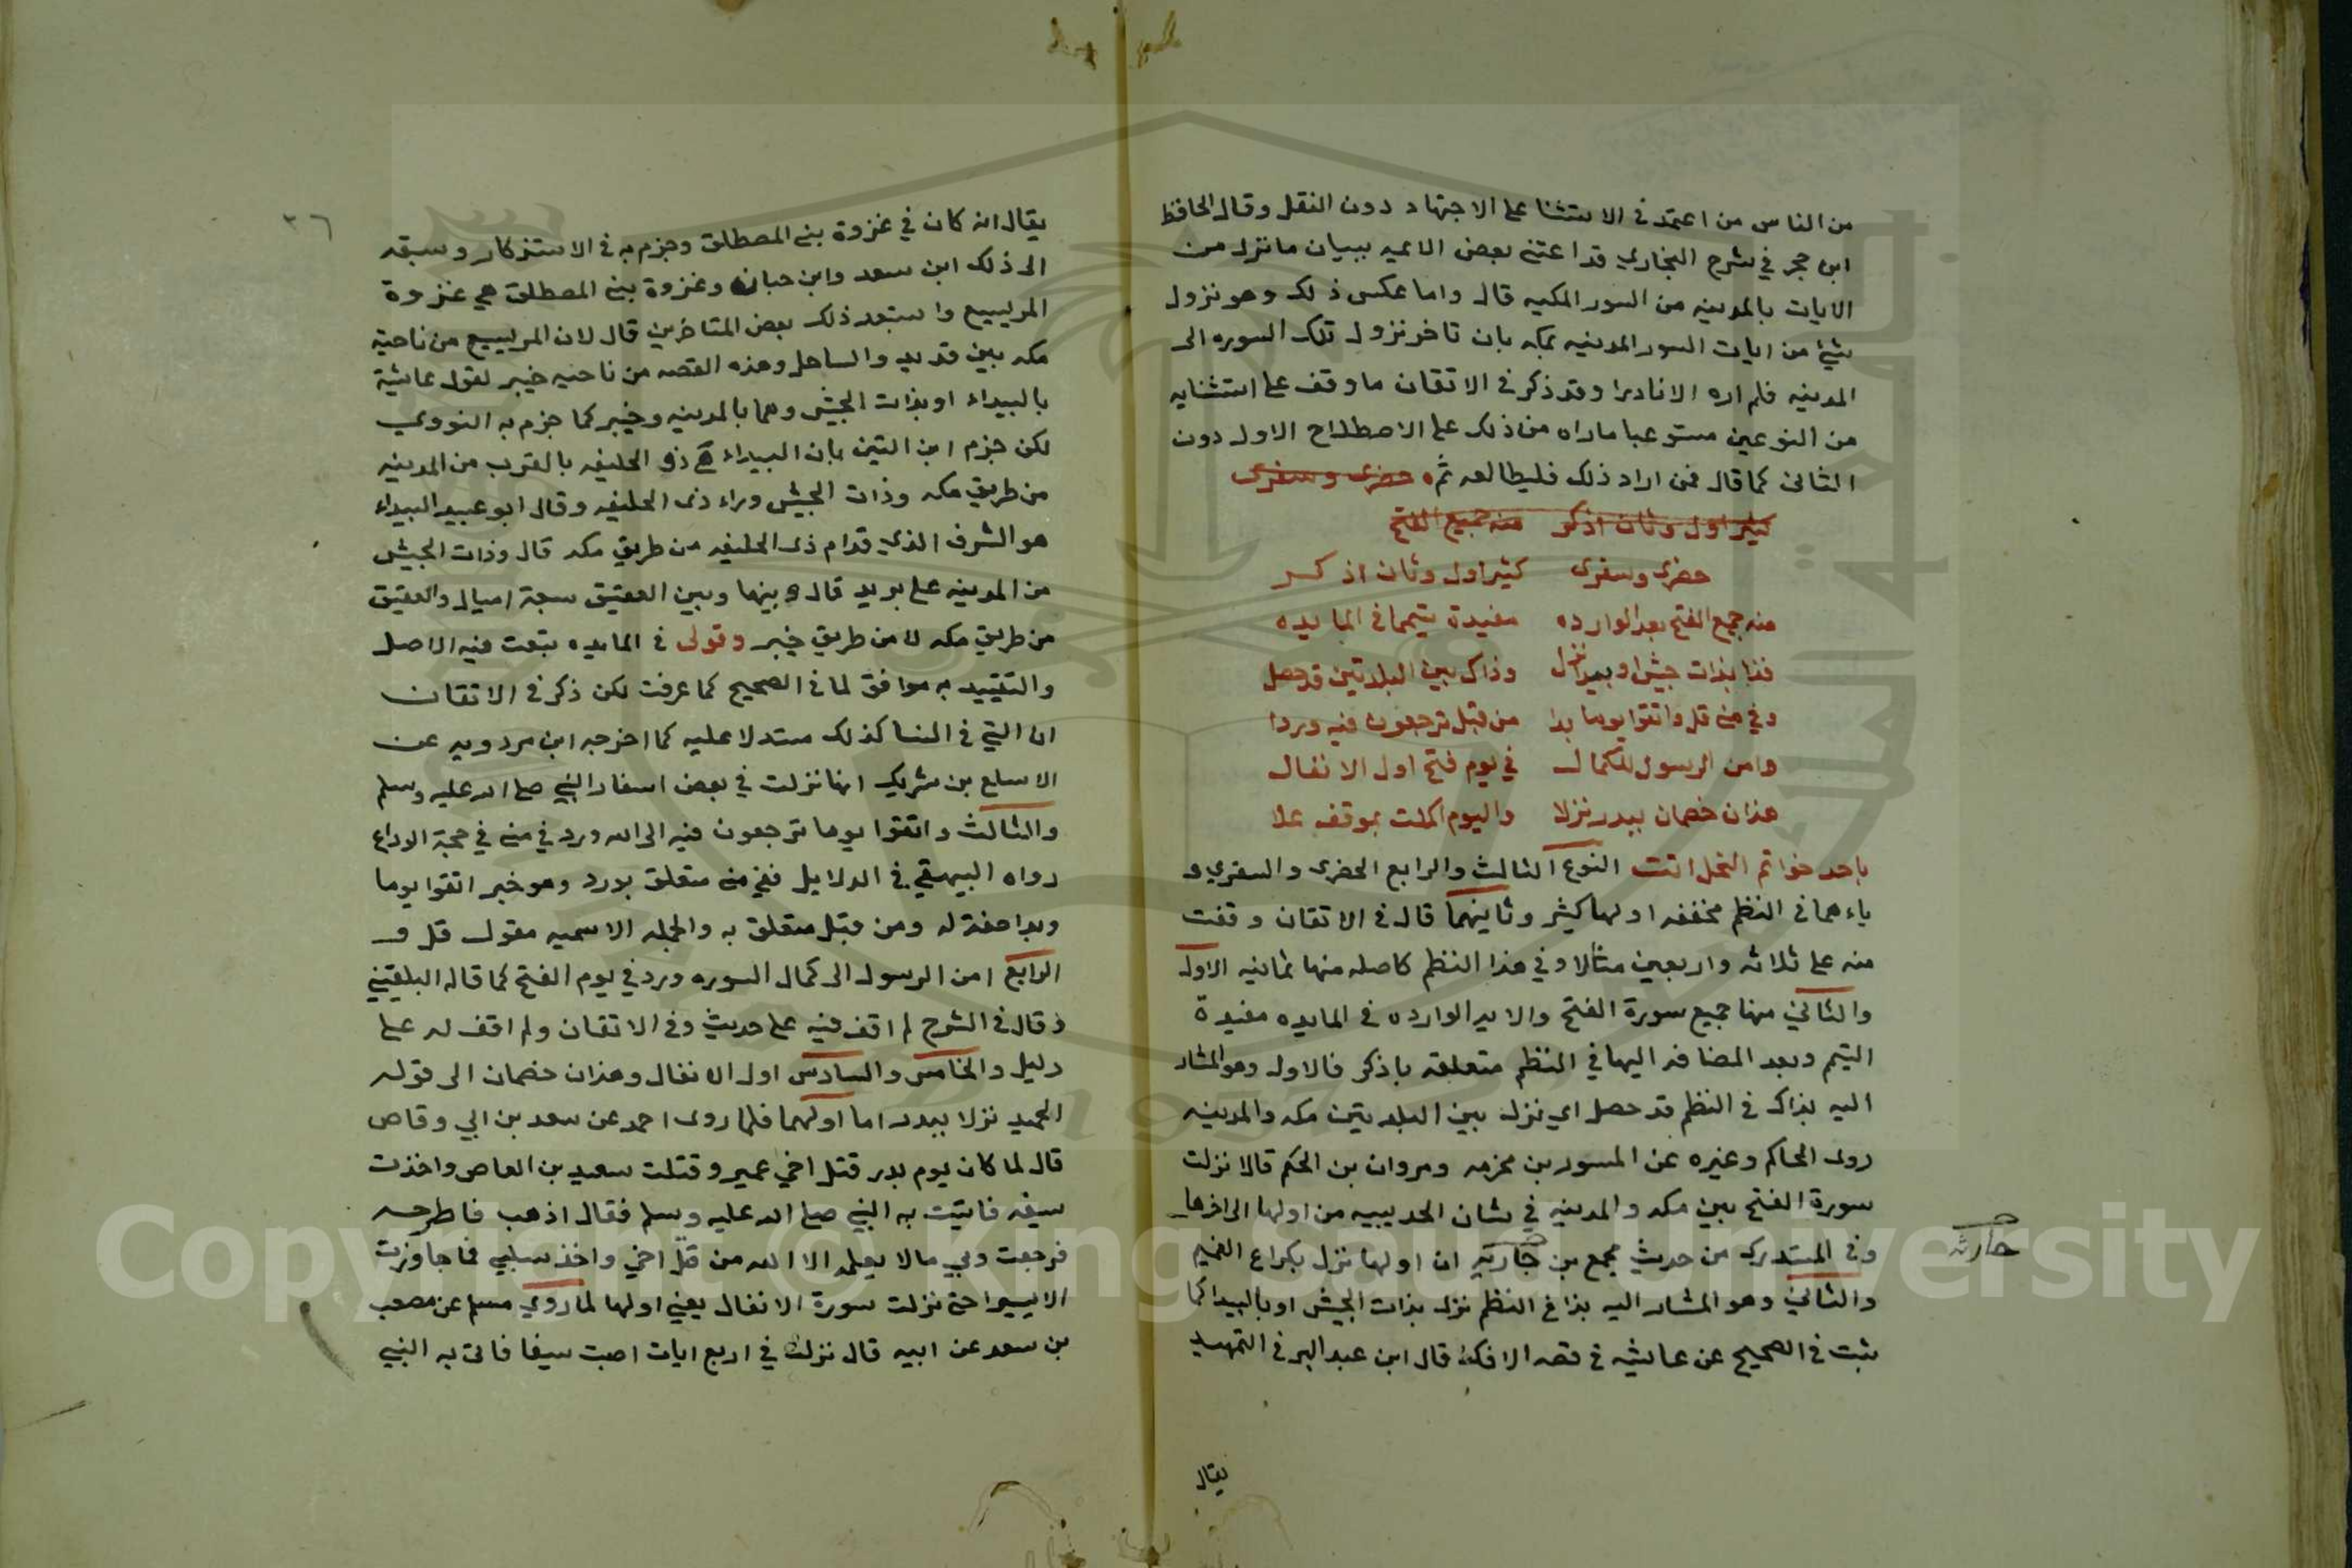 من الناس من اعتمد في الاستثنا على الاجتهاد دون النقل وقال الحافظ
ابن حجر في شرح البخاري قد اعتنى بعض الائمه ببيان ما نزل من
الايات بالمدينه من السور المكيه قال واما عكس ذلك وهو نزول
شئ من ايات السور المدينه بمكه بان تاخر نزول تلك السوره الى
المدينه فلم اره الا نادرا وقد ذكر في الاتقان ما وقف على استثنايه
من النوعين مستوعبا ماراه من ذلك على الاصطلاح الاول دون
الثاني كما قال فمن اراد ذلك فليطالعه ثمه حضري وسفري
كثير اول وثان اذكر منه جميع الفتح
حضري وسفري كثير اول وثان اذكر
منه جميع الفتح بعد الوارده مفيدة تيمما في المايده
فذا بذات جيش او بيدا نزل وذاك بين البلدتين قد حصل
وفي منى قل واتقوا يوما بدا من قبل ترجعون فيه وردا
وامن الرسول للكمال في يوم فتح اول الانفال
هذان خصمان ببدر نزلا واليوم اكملت بموقف علا
باحد خواتم النحل اتت النوع الثالث والرابع الحضري والسفري و
ياءهما في النظم مخففه اولها كثير وثانيهما قال في الاتقان وقفت
منه على ثلاثه واربعين مثالا وفي هذا النظم كاصله منها ثمانيه الاول
والثاني منها جميع سورة الفتح والايه الوارده في المايده مفيدة
التيمم وبعد المضافه اليها في النظم متعلقه باذكر فالاول وهو المشار
اليه بذاك في النظم قد حصل اي نزل بين البلدتين مكه والمدينه
روى الحاكم وغيره عن المسور بن مخرمه ومروان بن الحكم قالا نزلت
سورة الفتح بين مكه والمدينه في شان الحديبيه من اولها الى اخرها
وفي المستدرك من حديث مجمع بن جاريه ان اولها نزل بكراع الغميم
حارثه
والثاني وهو المشار اليه بذا في النظم نزل بذات الجيش او بالبيدا كما
ثبت في الصحيح عن عايشه في قصه الافك قال ابن عبد البر في التمهيد
يقال
٢٦
يقال انه كان في غزوة بني المصطلق وجزم به في الاستذكار وسبقه
الى ذلك ابن سعد وابن حبان وغزوة بني المصطلق هي غزوة
المريسيع واستبعد ذلك بعض المتاخرين قال لان المريسيع من ناحية
مكه بين قديد والساحل وهذه القصه من ناحيه خيبر لقول عايشة
بالبيداء او بذات الجيش وهما بالمدينه وخيبر كما جزم به النووي
لكن جزم ابن التين بان البيداء هي ذو الحليفه بالقرب من المدينه
من طريق مكه وذات الجيش وراء ذى الحليفه وقال ابو عبيد البيداء
هو الشرف الذي قدام ذى الحليفه من طريق مكه قال وذات الجيش
من المدينه على بريد قال وبينها وبين العقيق سبعة اميال والعقيق
من طريق مكه لا من طريق خيبر وقولى في المايده تبعت فيه الاصل
والتقييد به موافق لما في الصحيح كما عرفت لكن ذكر في الاتقان
ان التي في النسا كذلك مستدلا عليه كما اخرجه ابن مردويه عن
الاسلع بن شريك انها نزلت في بعض اسفار النبي صلى الله عليه وسلم
والثالث واتقوا يوما ترجعون فيه الى الله ورد في منى في حجة الوداع
رواه البيهقي في الدلايل ففي منى متعلق بورد وهو خبر اتقوا يوما
وبدا صفة له ومن قبل متعلق به والجمله الاسميه مقول قل و
الرابع امن الرسول الى كمال السوره ورد في يوم الفتح كما قاله البلقيني
وقال في الشرح لم اقف فيه على حديث وفي الاتقان ولم اقف له على
دليل والخامس والسادس اول الانفال وهذان خصمان الى قوله
الحميد نزلا ببدر اما اولهما فلما روى احمد عن سعد بن ابي وقاص
قال لما كان يوم بدر قتل اخي عمير وقتلت سعيد بن العاص واخذت
سيفه فاتيت به النبي صلى الله عليه وسلم فقال اذهب فاطرحه
فرجعت وبي مالا يعلمه الا الله من قتل اخي واخذ سلبي فما جاوزت
الا يسيرا حتى نزلت سورة الانفال يعني اولها لما روي مسلم عن مصعب
بن سعد عن ابيه قال نزلت في اربع ايات اصبت سيفا فاتى به النبي
Copyright © King Saud University
1957